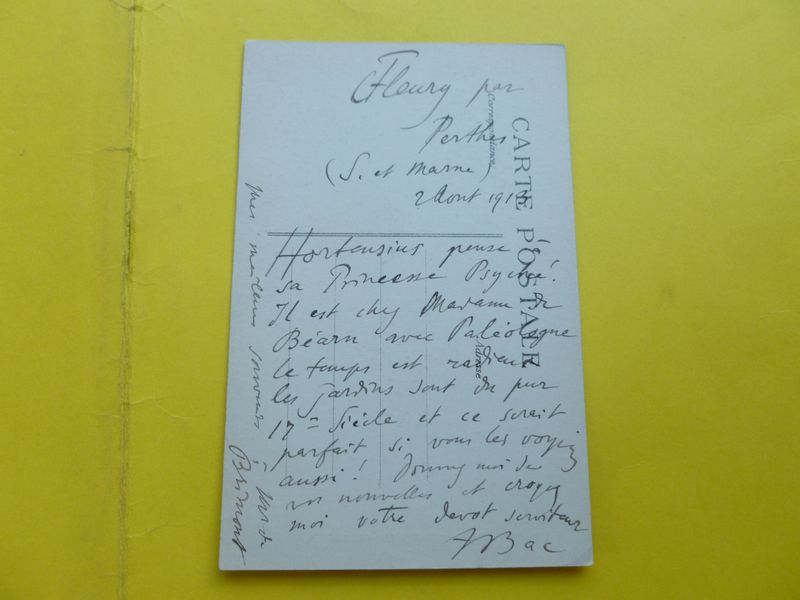 Fleury par
Perthes
(S. et Marne)
2 Aout 191
Hortensius pense à
sa Princesse Psyché!
Il est chez Madame de
Béarn avec Paléologue
le temps est radieux
les jardins sont du pur
17= Siècle et ce serait
parfait si vous les voyiez
aussi! Donnez moi de
vos nouvelles et croyez
moi votre devot serviteur
FBac
mes meilleurs souvenirs à Mr de
Brimont
CARTE POSTALE
Correspondance
Adresse